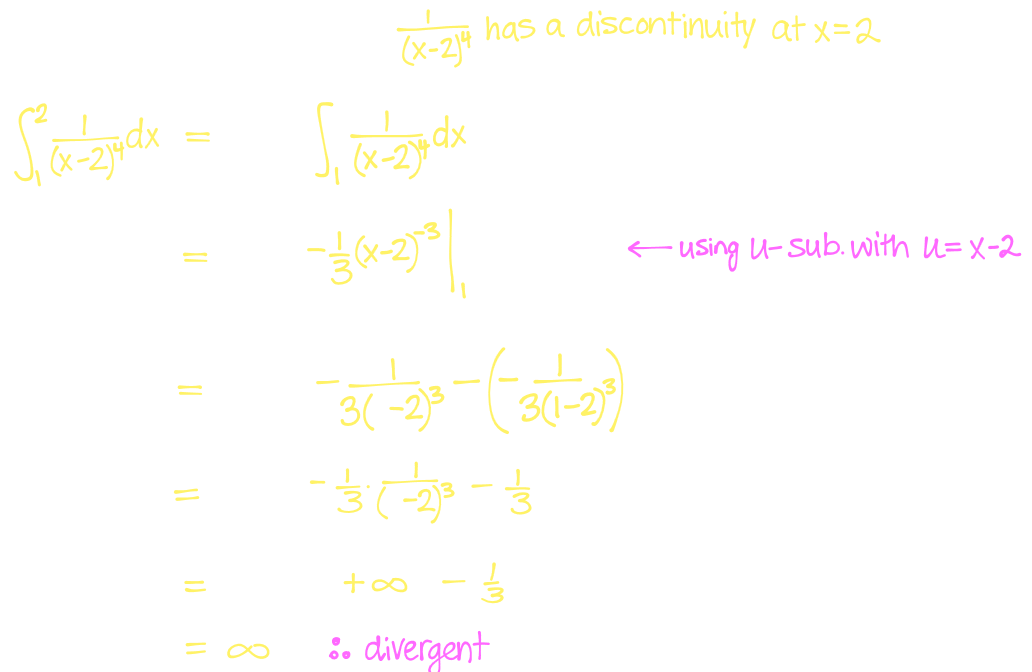 1/(x-2)^4 has a discontinuity at x=2
∫_1^2 1/(x-2)^4 dx = ∫_1 1/(x-2)^4 dx
= -1/3 (x-2)^-3 |_1 ← using u-sub. with u=x-2
= -1/(3( -2)^3) - (-1/(3(1-2)^3))
= -1/3 · 1/( -2)^3 - 1/3
= +∞ - 1/3
= ∞ ∴ divergent